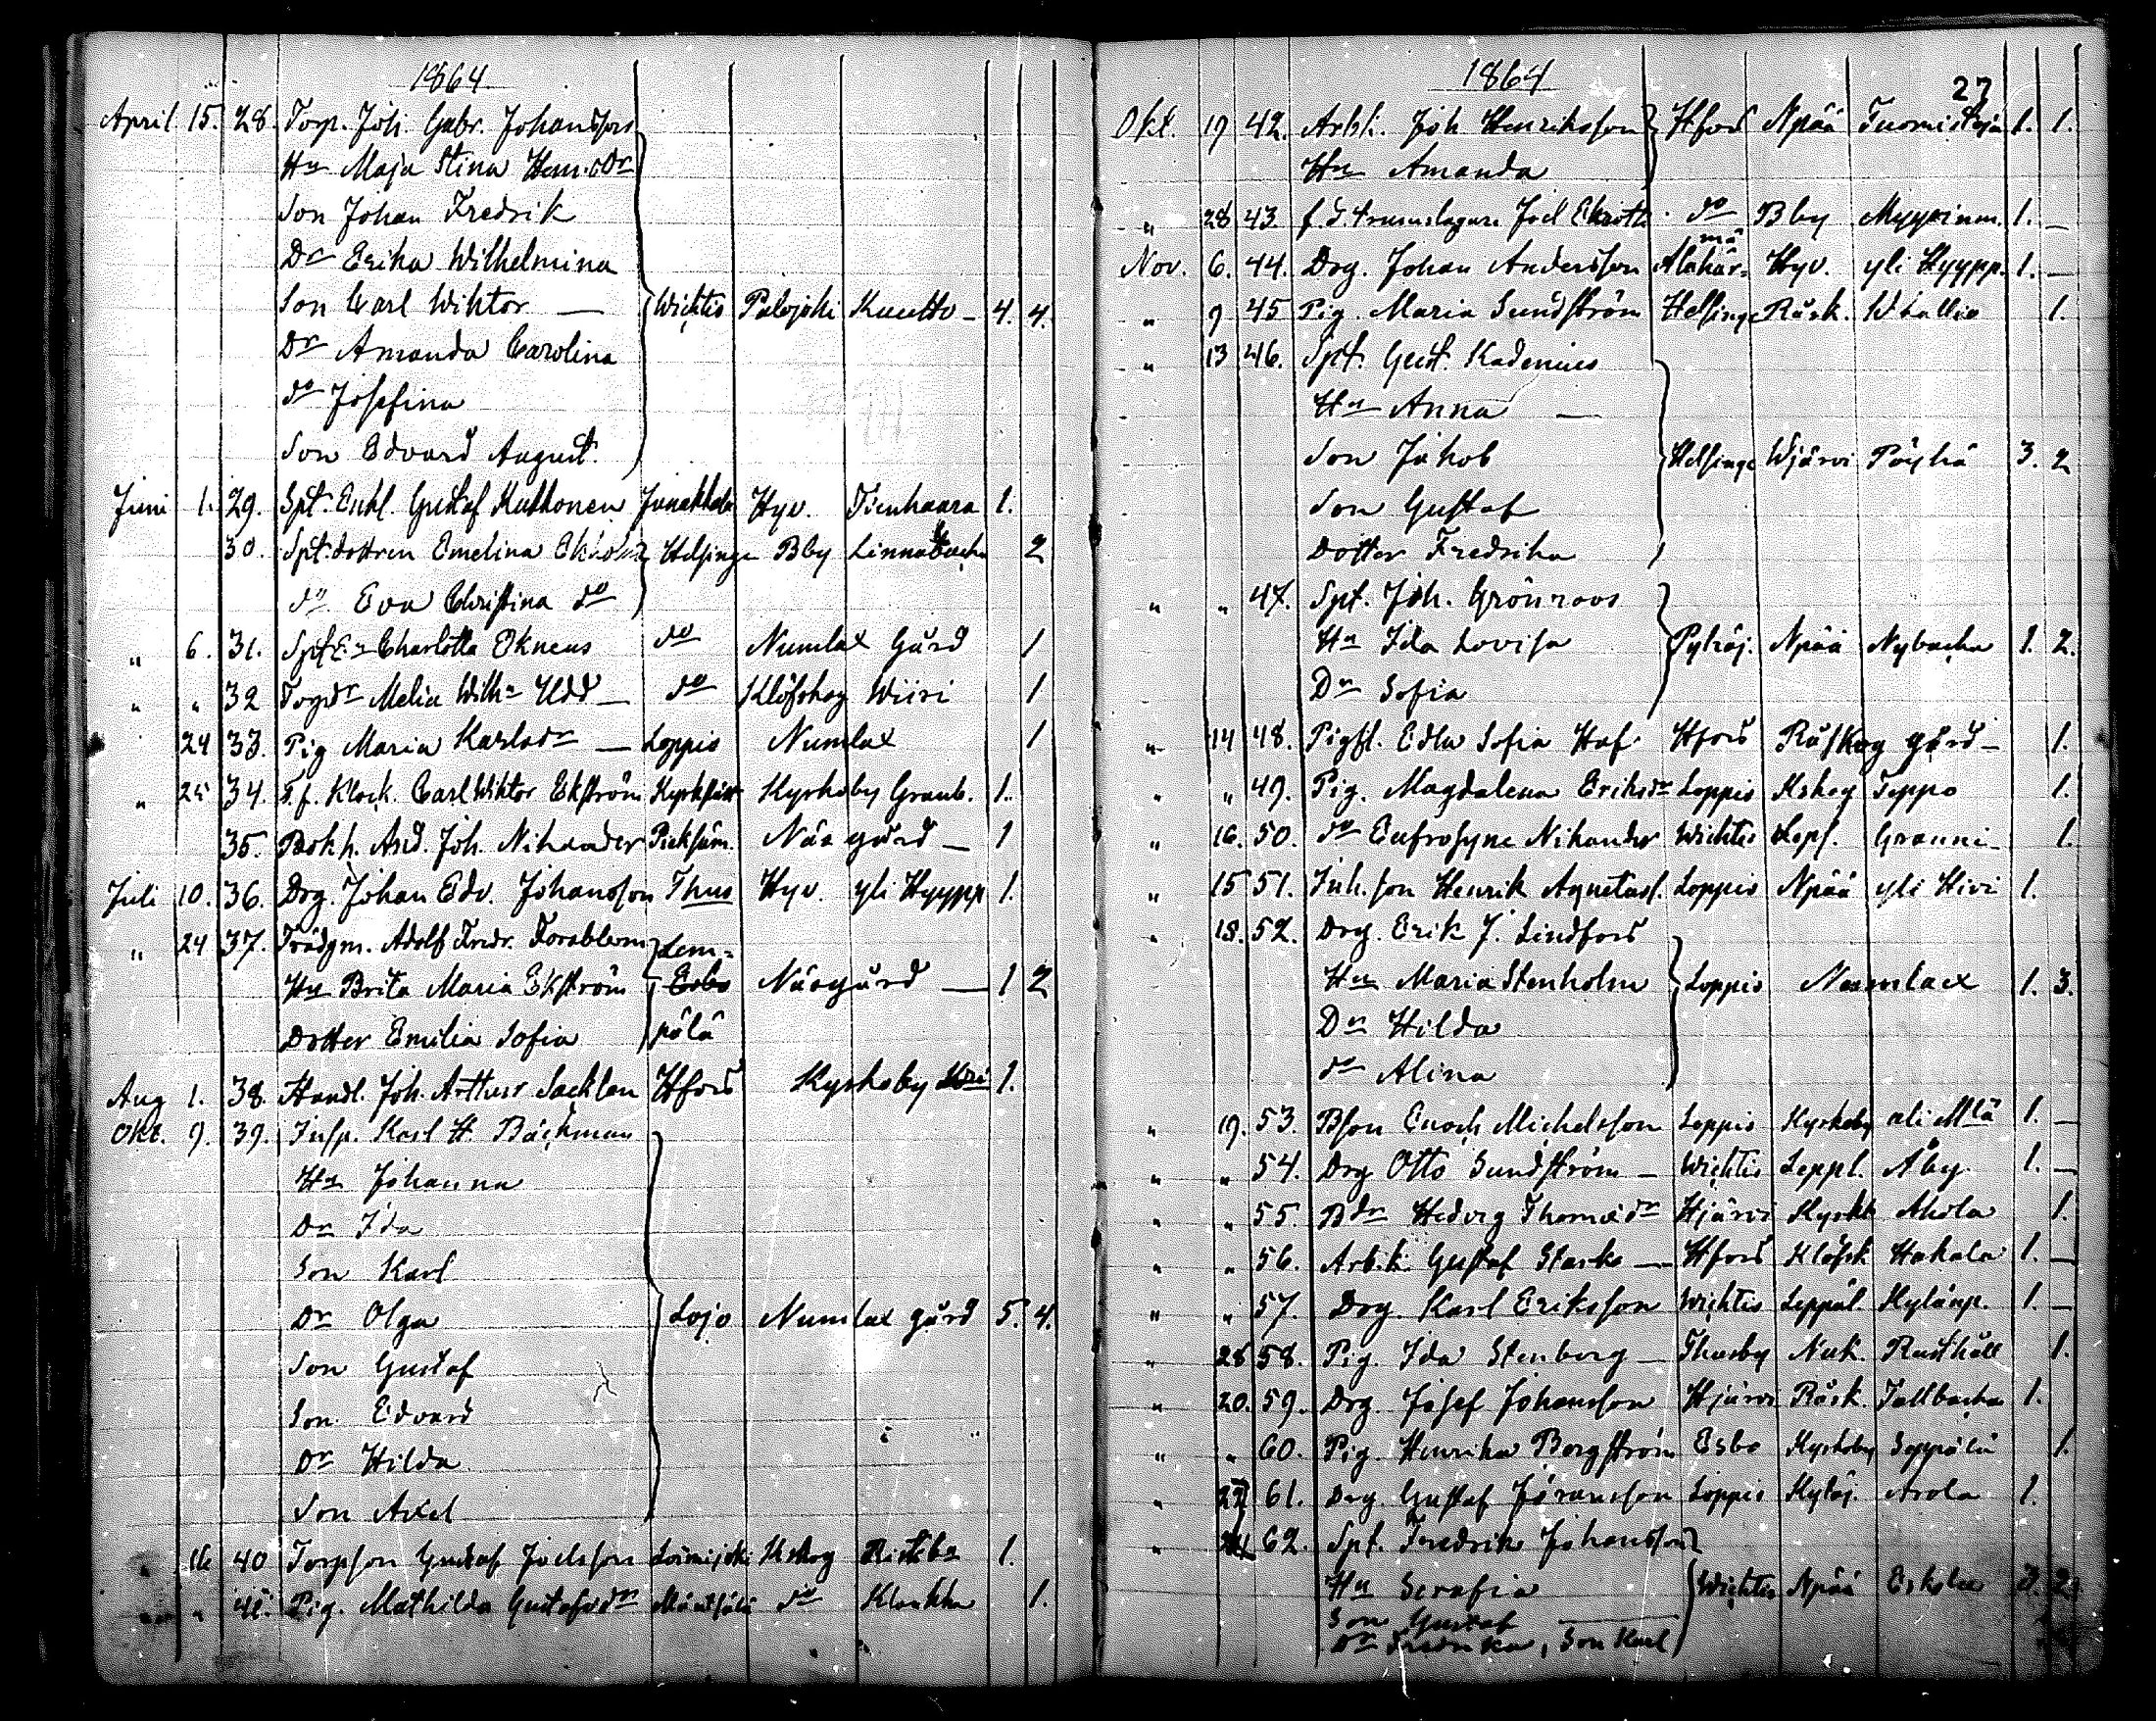 1864
April 15. 28. Torp. Joh. Gabr. Johansson
Hu Maja Stina Henr.Dr
Son Johan Fredrik
Dr Erika Wilhelmina
Son Carl Wiktor — Wichtis Palojoki Kuutto - 4. 4.
Dr Amanda Carolina
do Josefina
Son Edvard August.
Juni 1. 29. Spt. Enkl. Gustaf Kuhlonen Janakkala Hyv. Tienhaara 1.
30. Spt. dottren Emelina Ekholm Helsinge Bby Linnabacka 2
do Eva Christina do
" 6. 31. Charlotta Ekneus do Numlax Gård 1
" " 32 Torpdr Melia Wilh: Udd — do Klöfskog Wiiri 1
24 33. Pig Maria Karlsdr — Loppis Numlax 1
" 25 34. T.f. Klock. Carl Wiktor Ekström Kyrkslätt Kyrkoby Granb. 1.
35. Bokh. And. Joh. Nikander Pieksäm. Näs gård — 1
Juli 10. 36. Drg. Johan Edv. Johansson Thus Hyv. yli Hyypp 1.
" 24 37. Trädgm. Adolf Fredr. Forsblom Lem=
Hu Brita Maria Ekström Esbo Näsgård — 1 2
Dotter Emilia Sofia pälä
Aug 1. 38. Handl. Joh. Arthur Sacklen Hfors Kyrkoby 1.
Okt. 9. 39. Insp. Karl H. Bäckman
Hu Johanna
Dr Ida
Son Karl
Dr Olga Lojo Numlax gård 5. 4.
Son Gustaf
Son Edvard
Dr Hilda
Son Axel
" 16 40 Torpson Gustaf Joelsson Loimijoki Kskog 1.
" " 41. Pig. Mathilda Gustafsdr Mäntsälä do Klaukka 1.
1864 27
Okt. 19 42. Arbk. Joh Henriksson Hfors Npää Tuomistoja 1. 1.
Hu Amanda
" 28 43. f.d. trumslagare Joel Ekroth do Bby Myyrinm. 1. —
mä
Nov. 6. 44. Drg. Johan Andersson Alahär= Hyv. yli Hyypp. 1. —
" 9 45 Pig. Maria Sundström Helsinge Råsk. Wkallio 1.
" 13 46. Spt. Gust. Kadenius
Hu Anna —
Son Jakob Helsinge Wjärvi Pöyhä 3. 2
Son Gustaf
Dotter Fredrika
" " 47. Spt. Joh. Grönroos
Hu Ida Lovisa Pyhäj. Npää Nybacka 1. 2.
Dr Sofia
" 14 48. Pigfl. Edla Sofia Haf. Hfors Råskog gård — 1.
" " 49. Pig. Magdalena Eriksdr Loppis Kskog Teppo 1.
" 16. 50. do Eufrosyne Nikander Wichtis Lepl. Granni 1.
" 15 51. Inh. son Henrik Agnetasf. Loppis Npää yli Hivi 1.
" 18. 52. Drg. Erik J. Lindfors
Hu Maria Stenholm Loppis Numlax 1. 3.
Dr Hilda
do Alina
" 19. 53. Bson Enoch Michelsson Loppis Kyrkoby ali Mlä 1. —
" " 54. Drg Otto Sundström — Wichtis Leppl. Åby 1. —
" " 55. Bdr Hedvig Thomasdr Hjärvi Kyrkb Ahola 1.
" " 56. Arb.k. Gustaf Stark — Hfors Klöfsk Hakala 1. —
" " 57. Drg. Karl Eriksson Wichtis Leppäl. Kylänp. 1. —
" 28 58. Pig. Ida Stenberg — Thusby Nuk. Rusthåll 1.
" 20. 59. Drg. Josef Johansson Hjärvi Råsk. Tallbacka 1.
" " 60. Pig. Henrika Bergström Esbo Kyrkoby Seppälä 1.
" 22 61. Drg. Gustaf Göransson Loppis Kyläj. Arola 1.
" 24 62. Spt. Fredrik Johansson
Hu Serafia Wichtis Npää Eskola 3. 2.
Son Gustaf —
Dr Fredrika, Son Karl